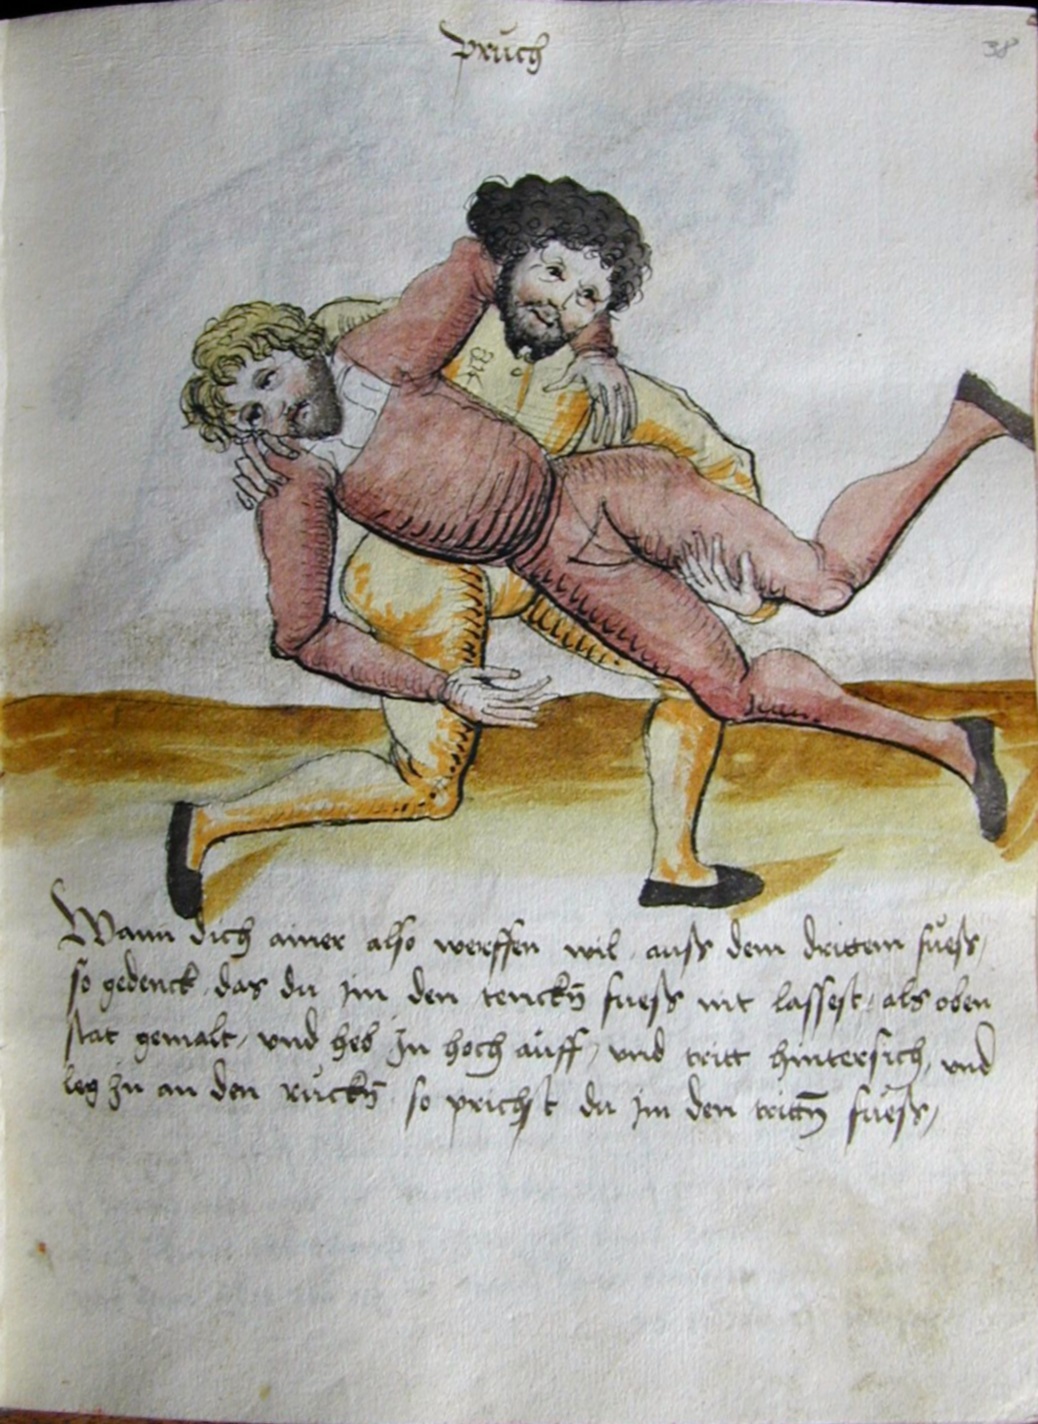 prŭch
38
Wann dich ainer also werffen wil, auss dem dritten fŭess,
so gedenck, das du jm den tenckn̄ fuess nit lassest, als oben
stat gemalt, vnd heb jn hoch aŭff, vnd tritt hintersich, vnd
leg jn an den rŭckn̄ so prichst du jm den tritn̄ fŭess,